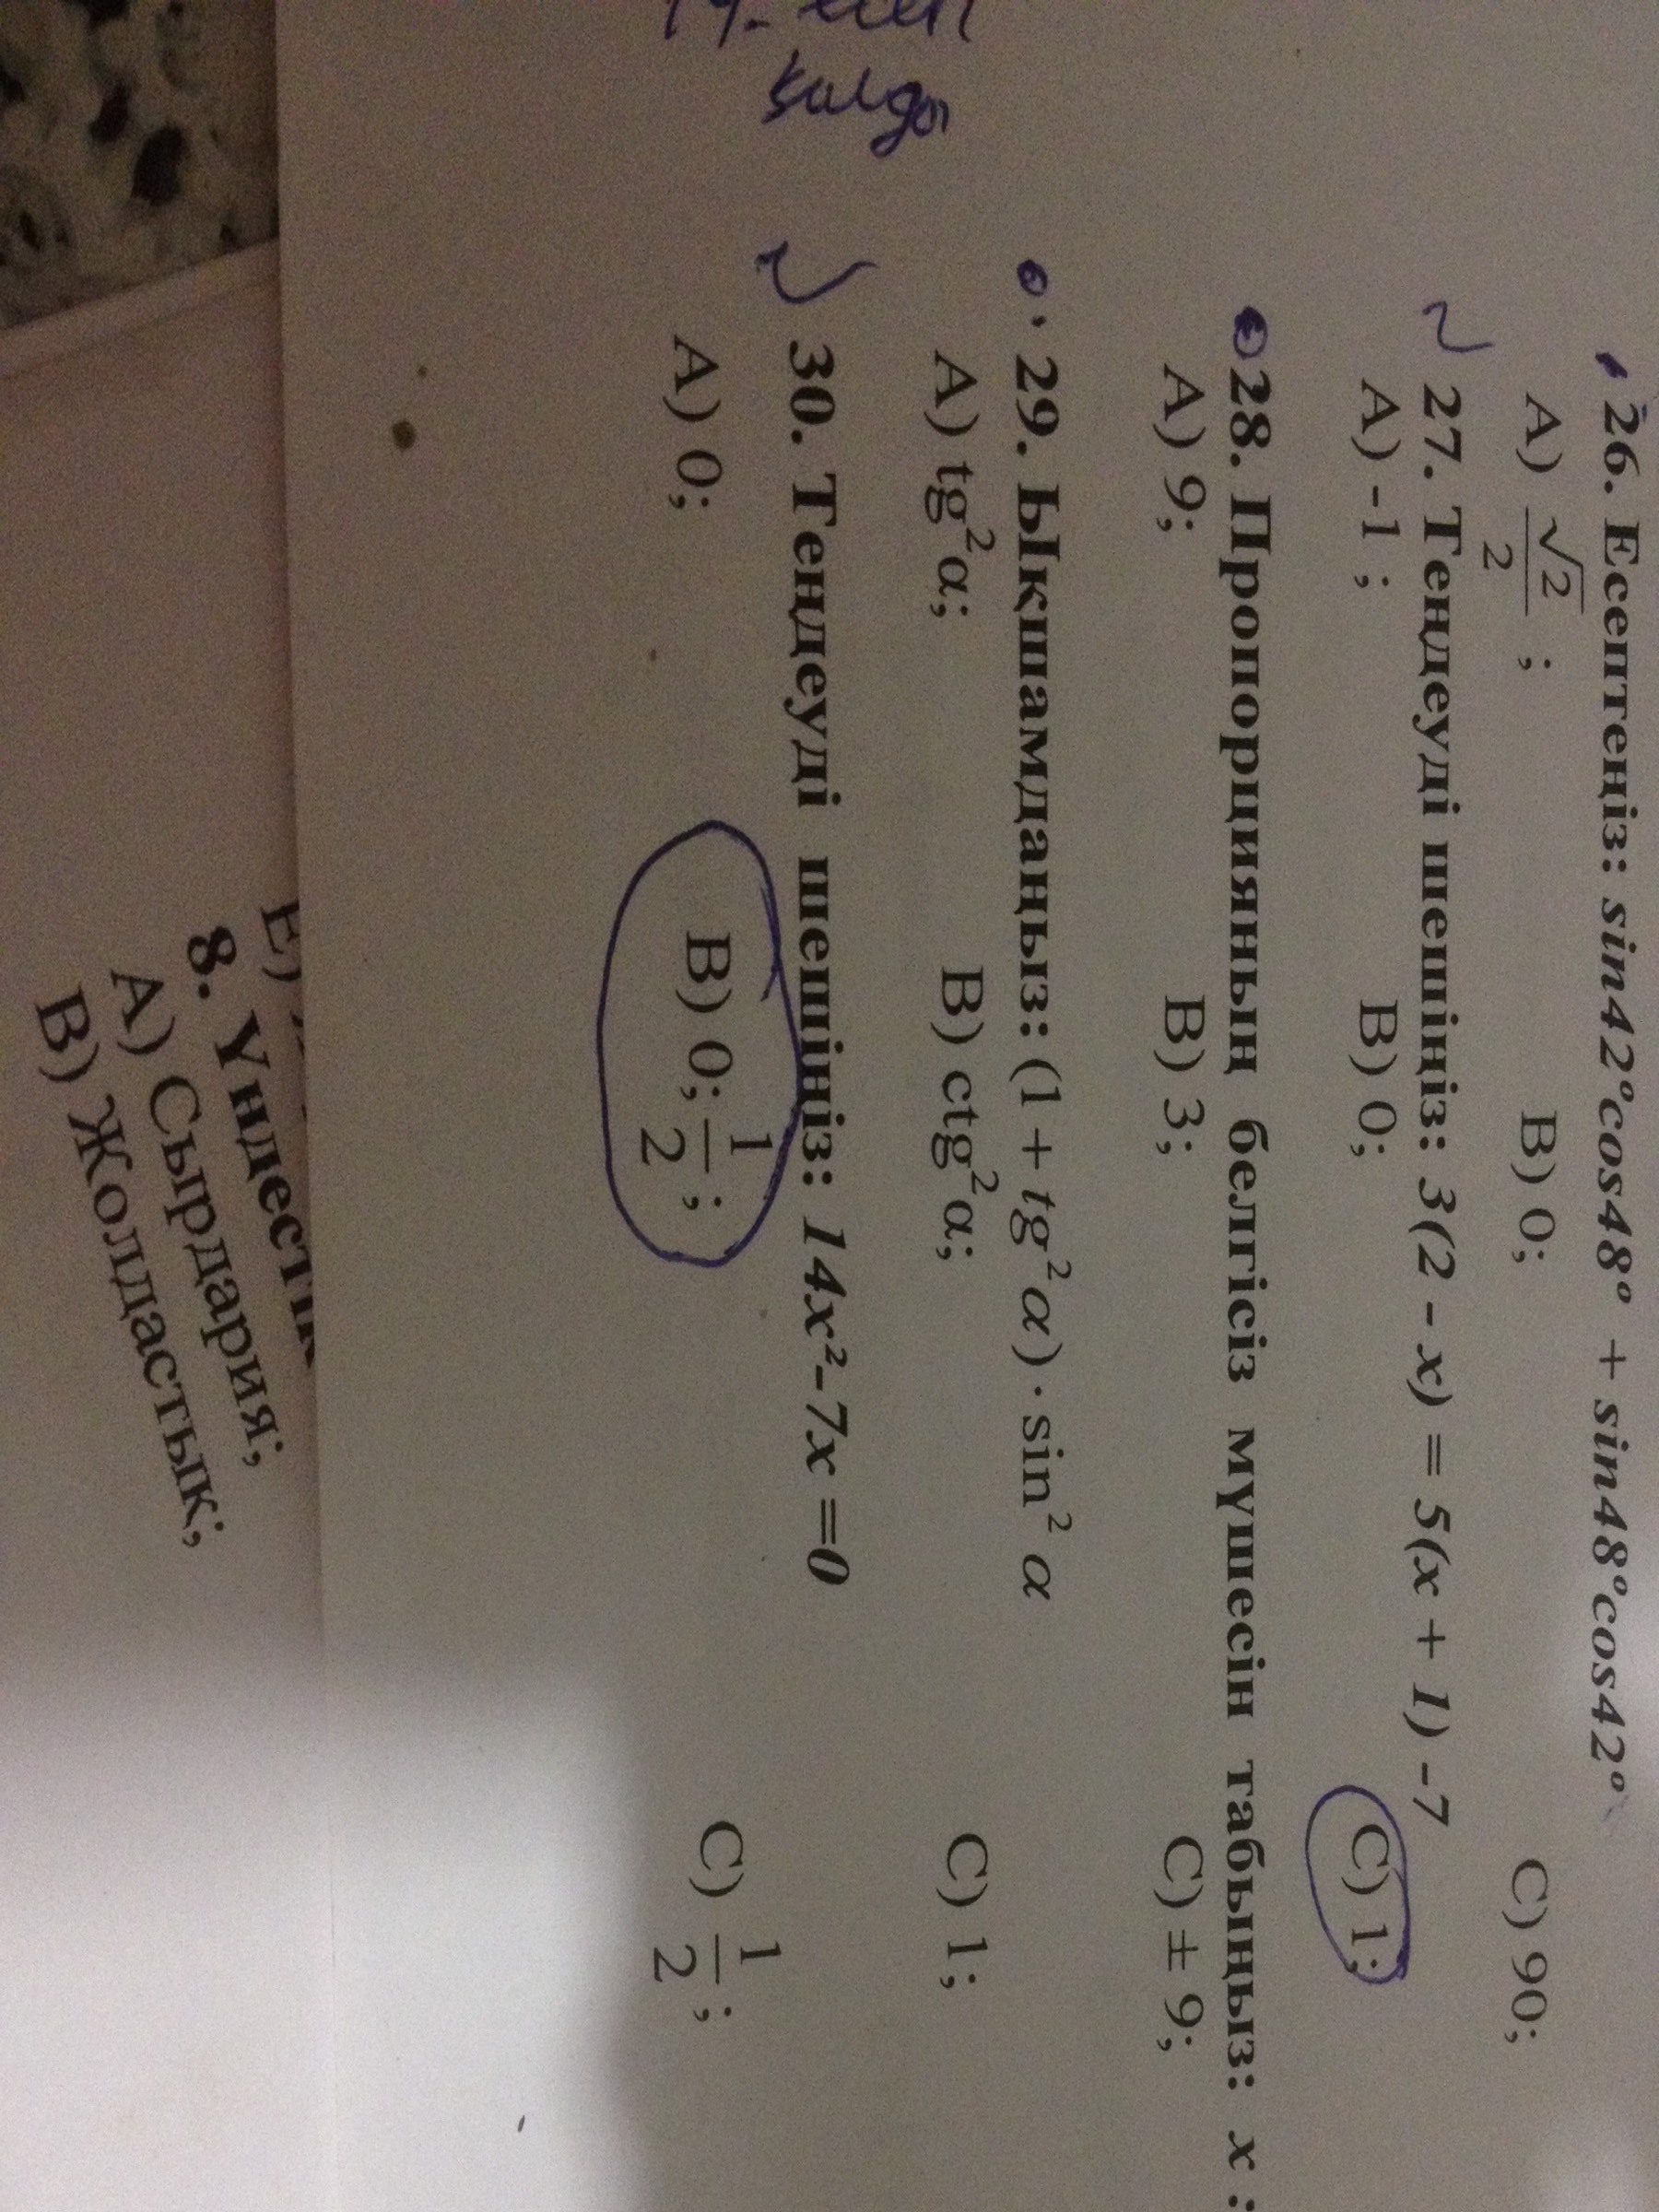 26. Есептеңіз: sin42°cos48° + sin48°cos42°
A) √2/2 ; B) 0; C) 90;
27. Теңдеуді шешіңіз: 3(2 - x) = 5(x + 1) -7
A) -1 ; B) 0; C) 1;
28. Пропорцияның белгісіз мүшесін табыңыз: x :
A) 9; B) 3; C) ± 9;
29. Ықшамдаңыз: (1 + tg²α) · sin² α
A) tg²α; B) ctg²α; C) 1;
30. Теңдеуді шешіңіз: 14x²-7x =0
A) 0; B) 0; 1/2 ; C) 1/2 ;
E)
8. Үндестік
A) Сырдария;
B) Жолдастық;